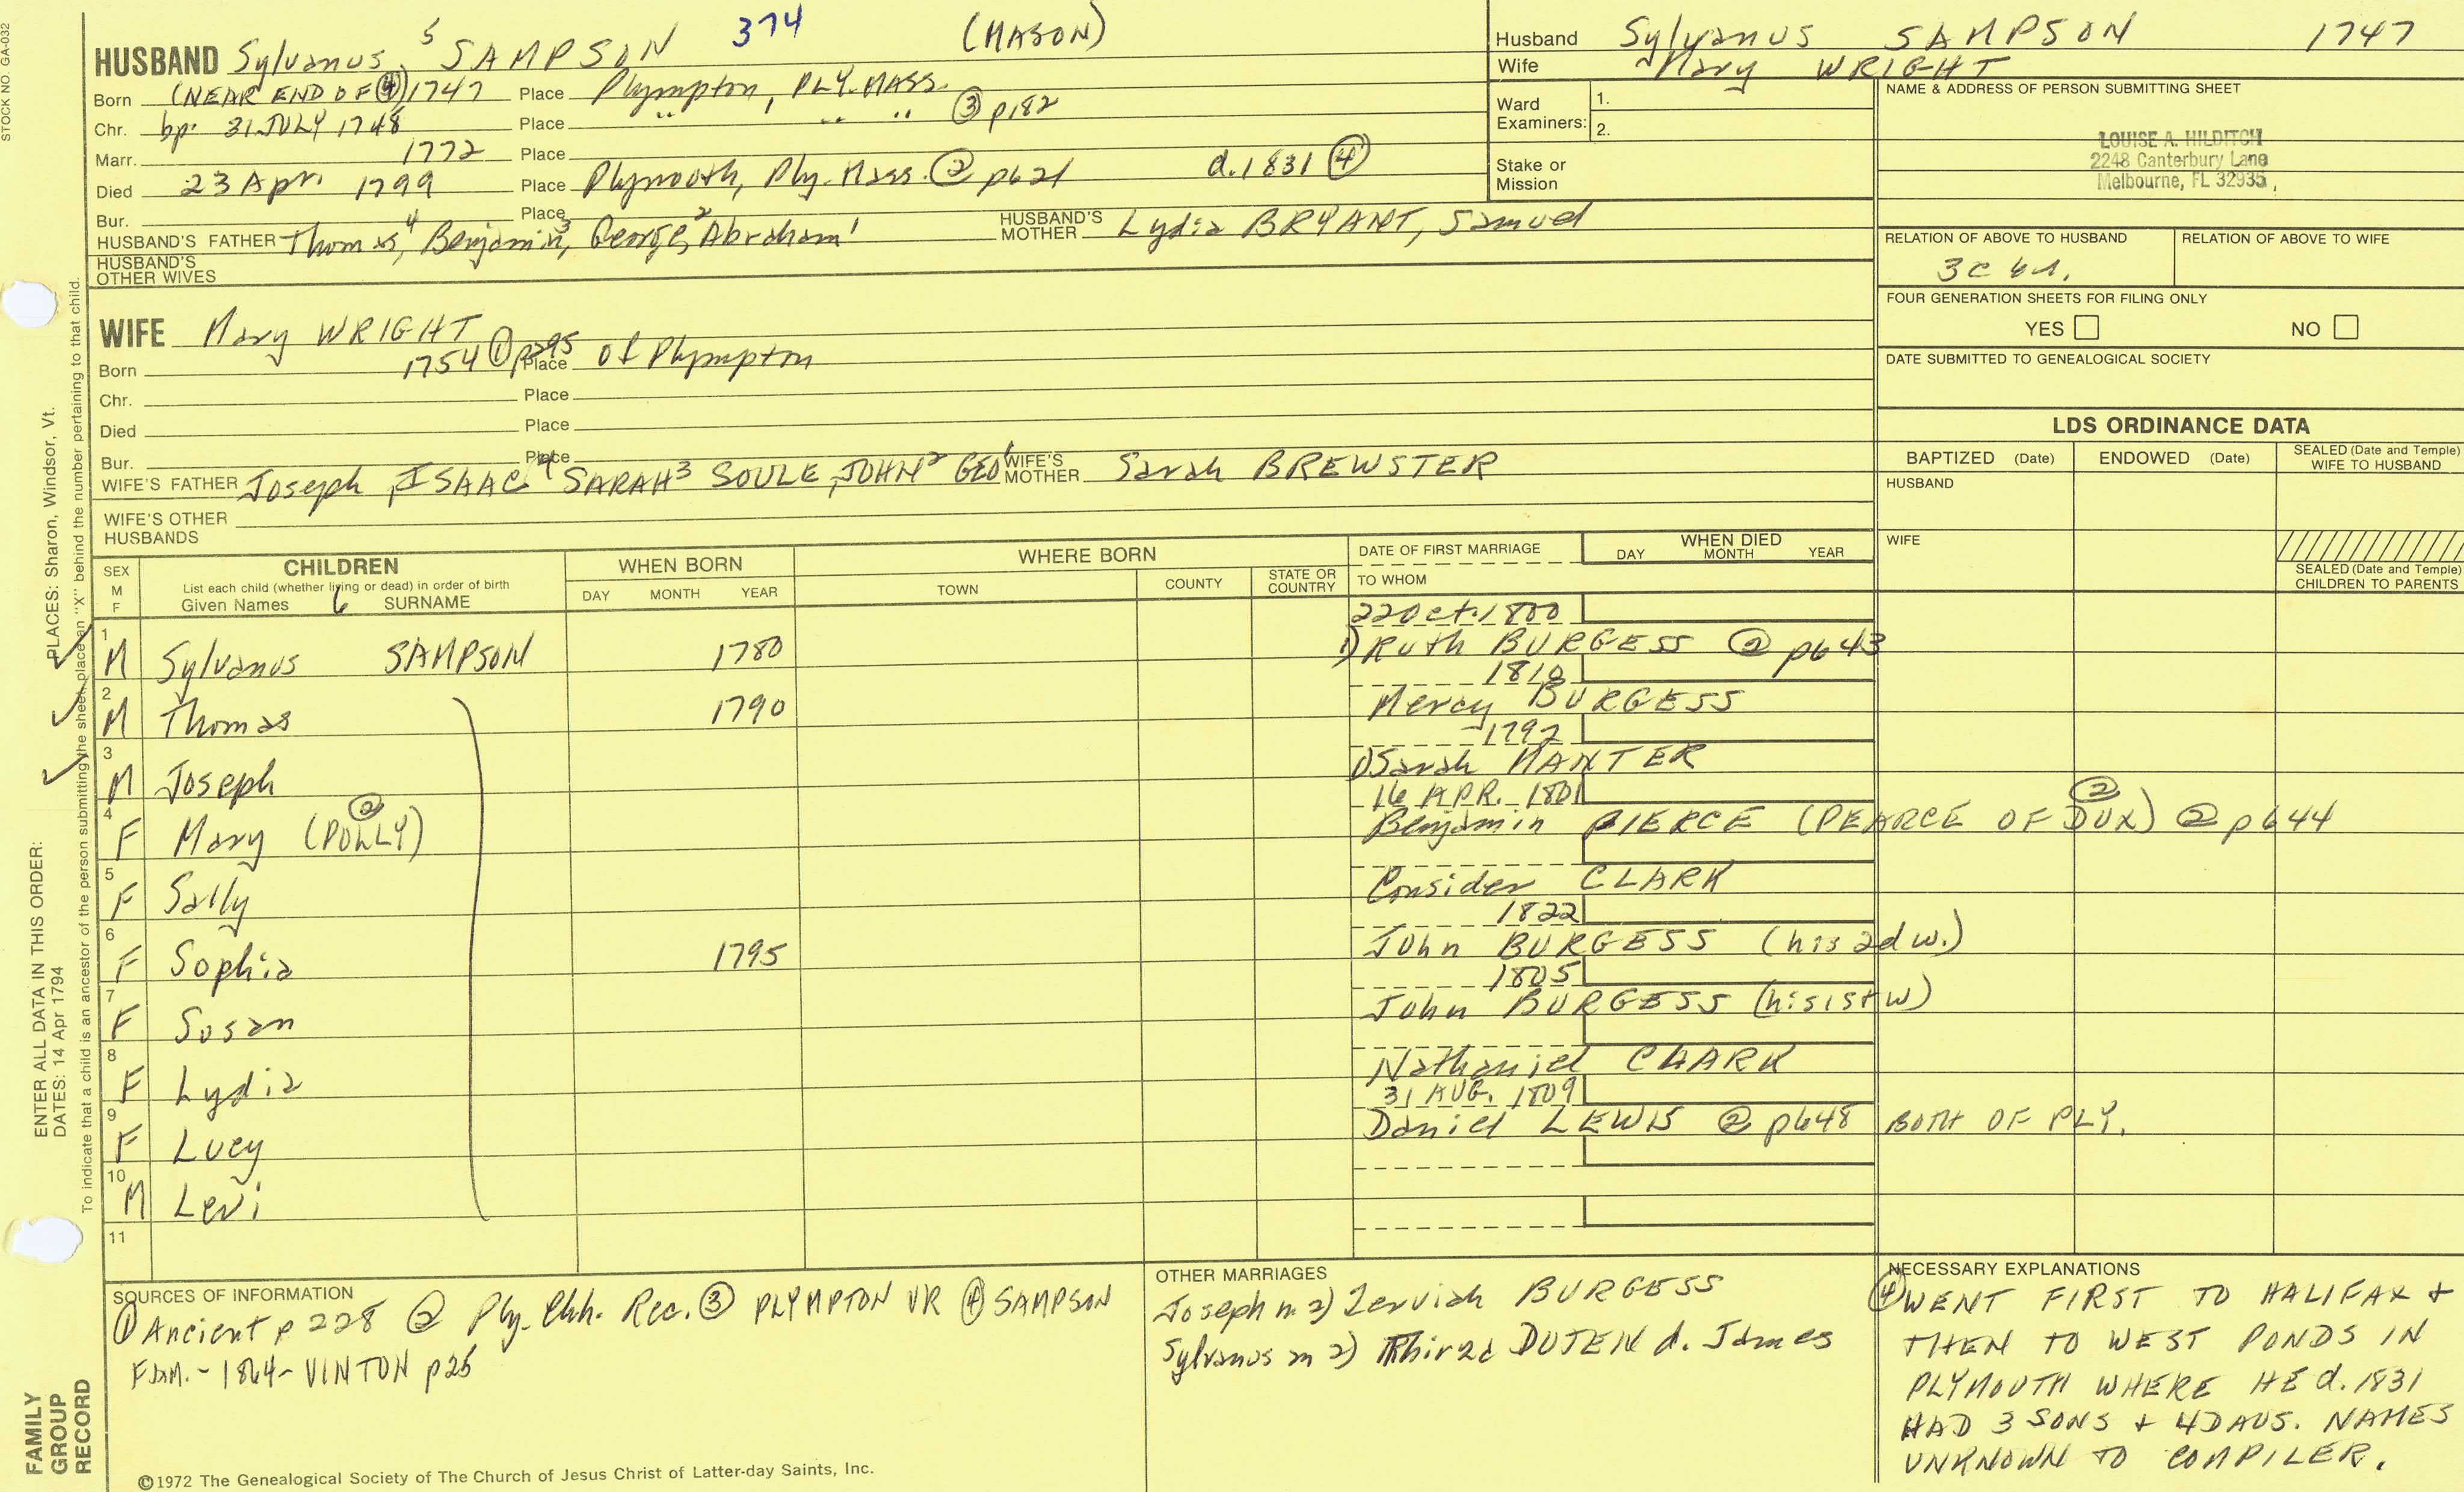 STOCK NO. GA-032
HUSBAND Sylvanus 5 SAMPSON 374 (MASON)
Born (NEAR END OF ④) 1747 Place Plympton, PLY. MASS.
Chr. bp: 31 JULY 1748 Place " " " ③ p182
Marr. 1772 Place
Died 23 Apr. 1799 Place Plymouth, Ply. Mass. ② p621 d. 1831 ④
Bur. Place
HUSBAND'S FATHER Thomas 4, Benjamin 3, George 2, Abraham 1 HUSBAND'S MOTHER Lydia BRYANT, Samuel
HUSBAND'S OTHER WIVES
WIFE Mary WRIGHT
Born 1754 ① p295 Place of Plympton
Chr. Place
Died Place
Bur. Place
WIFE'S FATHER Joseph, ISAAC 4 SARAH 3 SOULE, JOHN 2 GEO 1 WIFE'S MOTHER Sarah BREWSTER
WIFE'S OTHER HUSBANDS
Husband Sylvanus SAMPSON 1747
Wife Mary WRIGHT
Ward Examiners: 1.
2.
Stake or Mission
NAME & ADDRESS OF PERSON SUBMITTING SHEET
LOUISE A. HILDITCH
2248 Canterbury Lane
Melbourne, FL 32935
RELATION OF ABOVE TO HUSBAND RELATION OF ABOVE TO WIFE
3c
FOUR GENERATION SHEETS FOR FILING ONLY
YES NO
DATE SUBMITTED TO GENEALOGICAL SOCIETY
LDS ORDINANCE DATA
BAPTIZED (Date) ENDOWED (Date) SEALED (Date and Temple) WIFE TO HUSBAND
HUSBAND
WIFE
SEALED (Date and Temple) CHILDREN TO PARENTS
SEX M F
CHILDREN
List each child (whether living or dead) in order of birth
Given Names 6 SURNAME
WHEN BORN
DAY MONTH YEAR
WHERE BORN
TOWN COUNTY STATE OR COUNTRY
DATE OF FIRST MARRIAGE
TO WHOM
WHEN DIED
DAY MONTH YEAR
22 Oct. 1800
1 M Sylvanus SAMPSON 1780 1) Ruth BURGESS ② p643
1810
2 M Thomas 1790 Mercy BURGESS
1792
3 M Joseph 1) Sarah MANTER
16 APR. 1801
4 F Mary (POLLY) ② Benjamin PIERCE (PEARCE OF DUX) ② ② p644
5 F Sally Consider CLARK
1822
6 F Sophia 1795 John BURGESS (his 2d w.)
1805
7 F Susan John BURGESS (his 1st w)
8 F Lydia Nathaniel CLARK
31 AUG. 1809
9 F Lucy Daniel LEWIS ② p648 BOTH OF PLY.
10 M Levi
11
SOURCES OF INFORMATION
① Ancient p 228 ② Ply. Chh. Rec. ③ PLYMPTON VR ④ SAMPSON
FAM. - 1864 - VINTON p25
©1972 The Genealogical Society of The Church of Jesus Christ of Latter-day Saints, Inc.
OTHER MARRIAGES
Joseph m 2) Zerviah BURGESS
Sylvanus m 2) DUTEN d. James
NECESSARY EXPLANATIONS
④ WENT FIRST TO HALIFAX +
THEN TO WEST PONDS IN
PLYMOUTH WHERE HE d. 1831
HAD 3 SONS + 4 DAUS. NAMES
UNKNOWN TO COMPILER.
PLACES: Sharon, Windsor, Vt.
ENTER ALL DATA IN THIS ORDER:
DATES: 14 Apr 1794
To indicate that a child is an ancestor of the person submitting the sheet, place an "X" behind the number pertaining to that child.
FAMILY
GROUP
RECORD